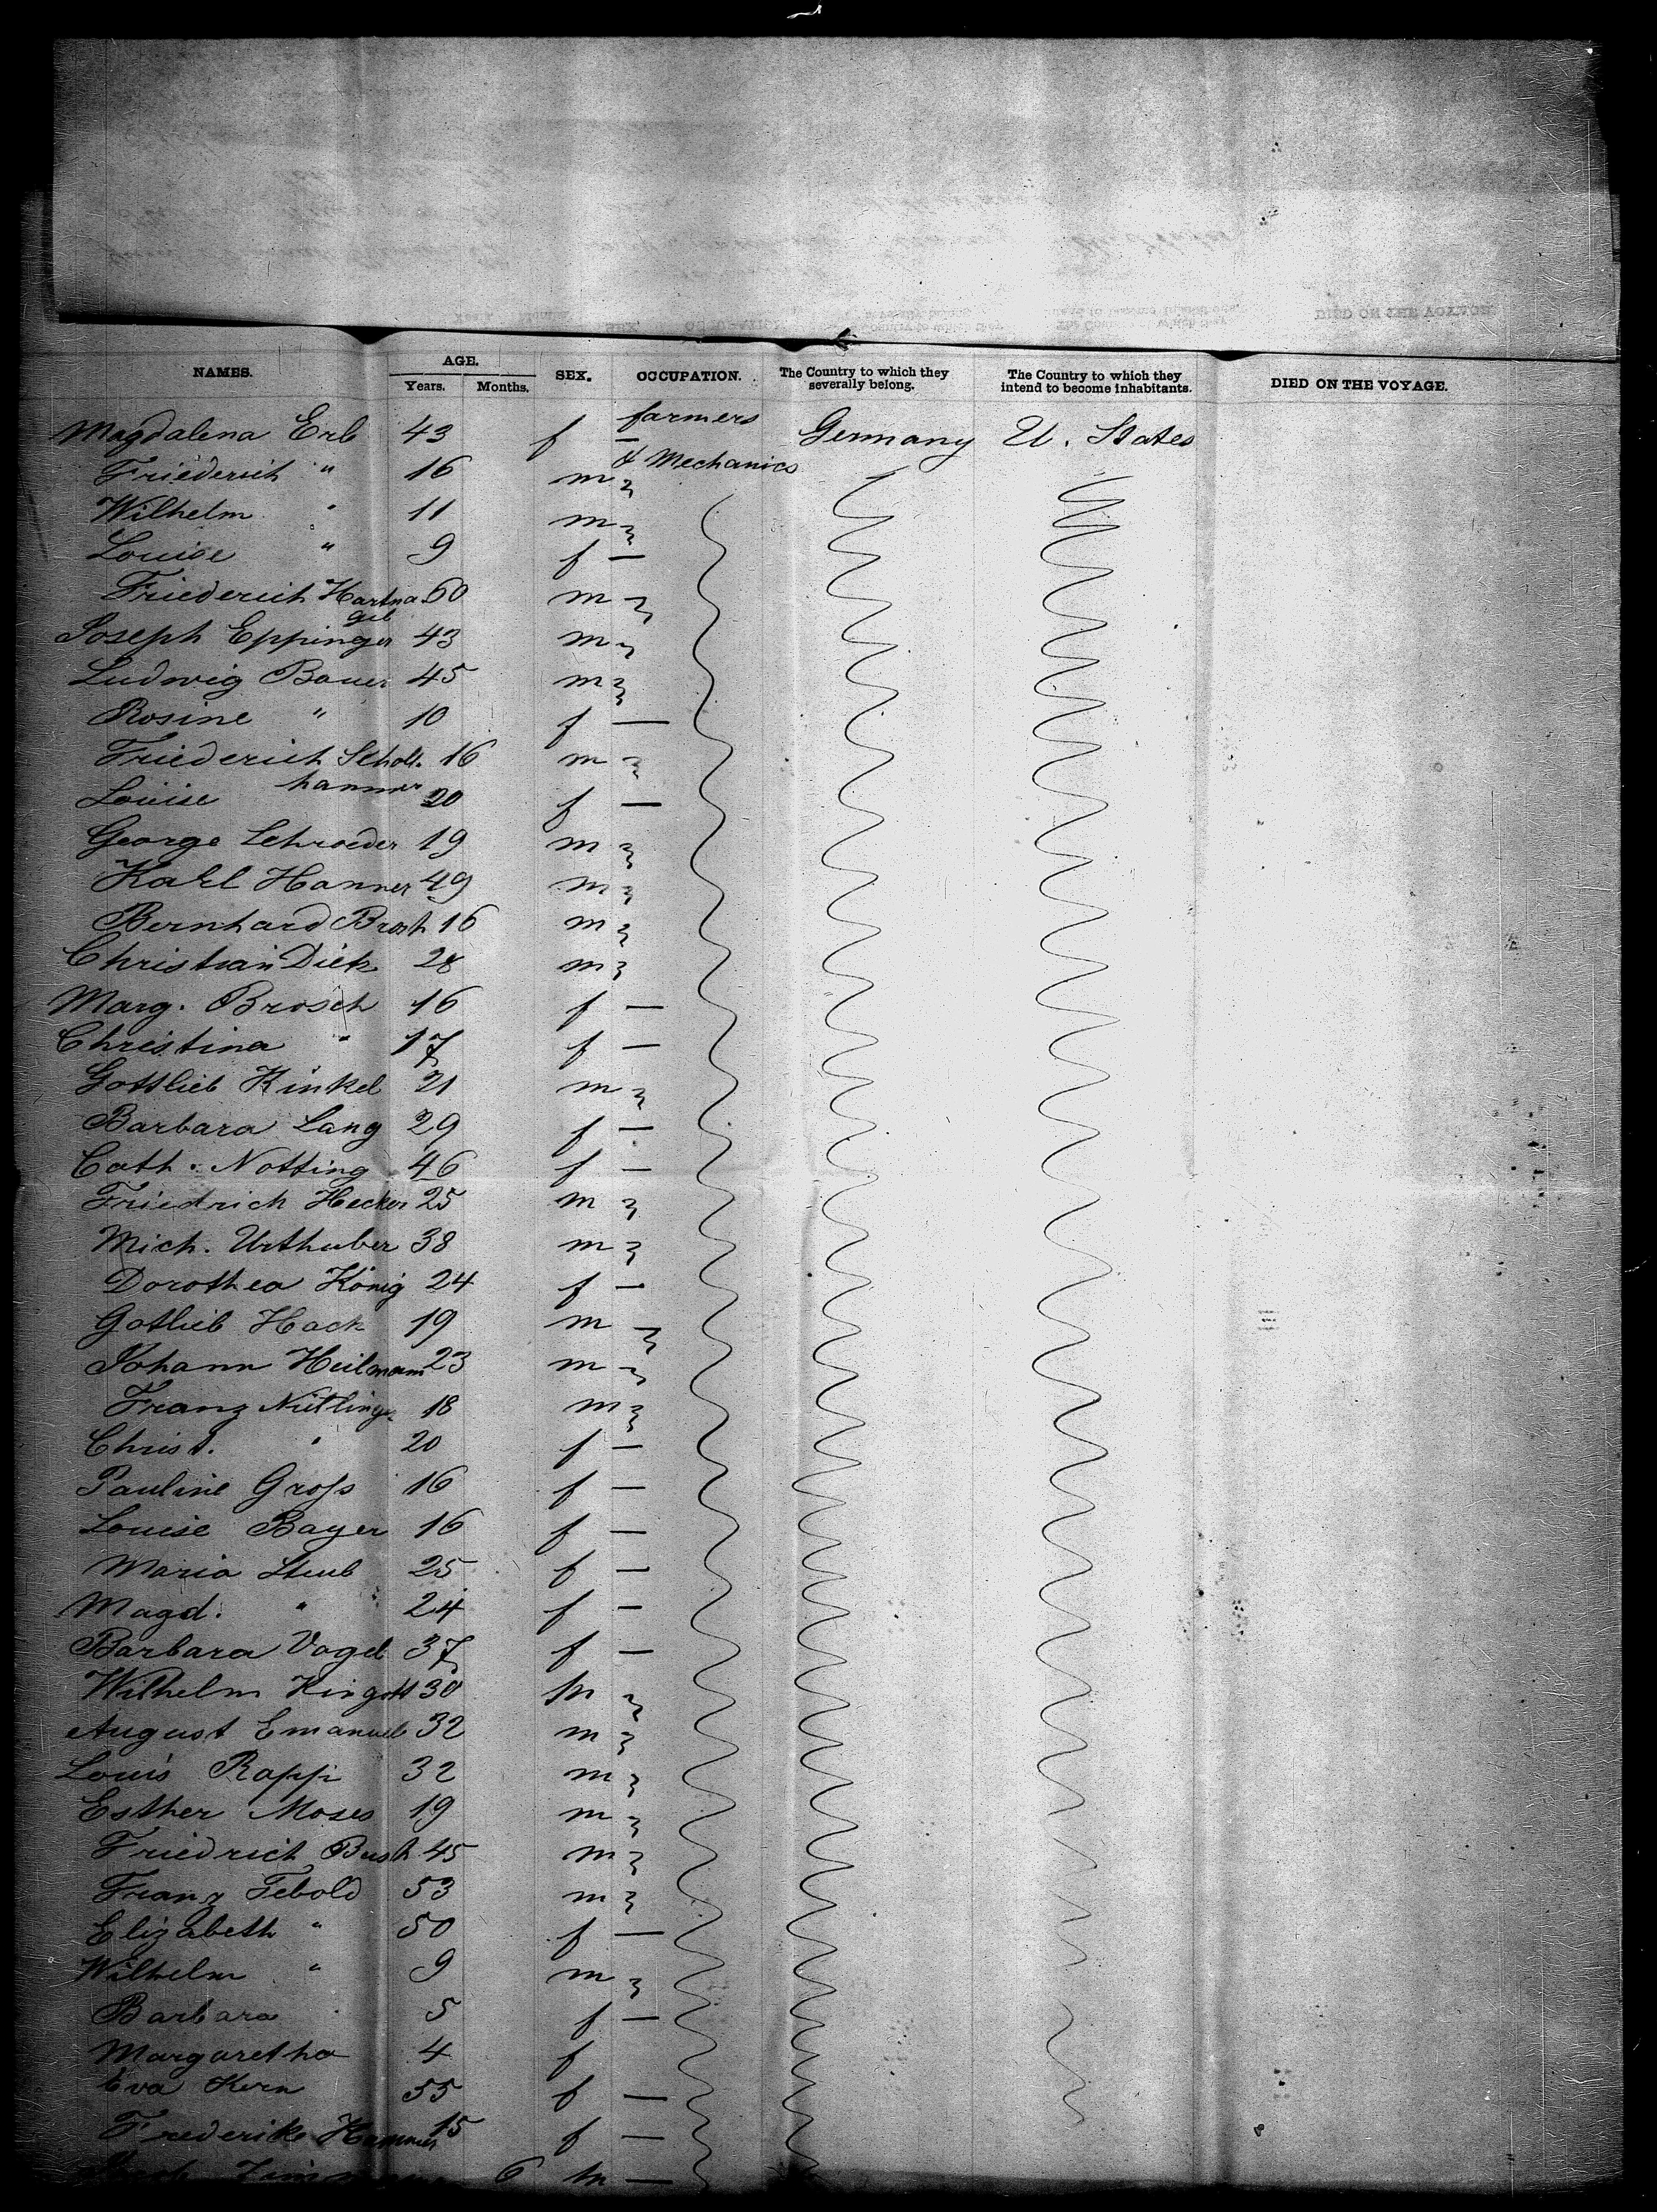 NAMES. AGE. SEX. OCCUPATION. The Country to which they severally belong. The Country to which they intend to become inhabitants. DIED ON THE VOYAGE.
Years. Months.
farmers
Magdalena Erb 43 f — Germany U. States
& Mechanics
Friederich " 16 m
Wilhelm " 11 m
Louise " 9 f —
Friederich Hartna 60 m
gel
Joseph Eppinger 43 m
Ludwig Bauer 45 m
Rosine " 10 f —
Friederich Scholl. 16 m
hammer
Louise 20 f —
George Schroeder 19 m
Karl Hanner 49 m
Bernhard Brosh 16 m
Christian Dietz 28 m
Marg. Brosch 16 f —
Christina " 17 f —
Gottlieb Kinkel 21 m
Barbara Lang 29 f —
Cath. Notting 46 f —
Friedrich Hecker 25 m
Mich. Urthuber 38 m
Dorothea König 24 f —
Gotlieb Hack 19 m
Johann Heilmann 23 m
Franz 18 m
Christ. " 20 f —
Pauline Gross 16 f —
Louise Bayer 16 f —
Maria Steub 25 f —
Magd. " 24 f —
Barbara Vogel 37 f —
Wilhelm Kingott 30 m
August Emanuel 32 m
Louis Rapp 32 m
Esther Moses 19 m
Friedrich Bush 45 m
Franz Tebold 53 m
Elizabeth " 50 f —
Wilhelm " 9 m
Barbara 5 f —
Margaretha 4 f
Eva Kern 55 f —
Frederike Hammer 15 f —
6 m —